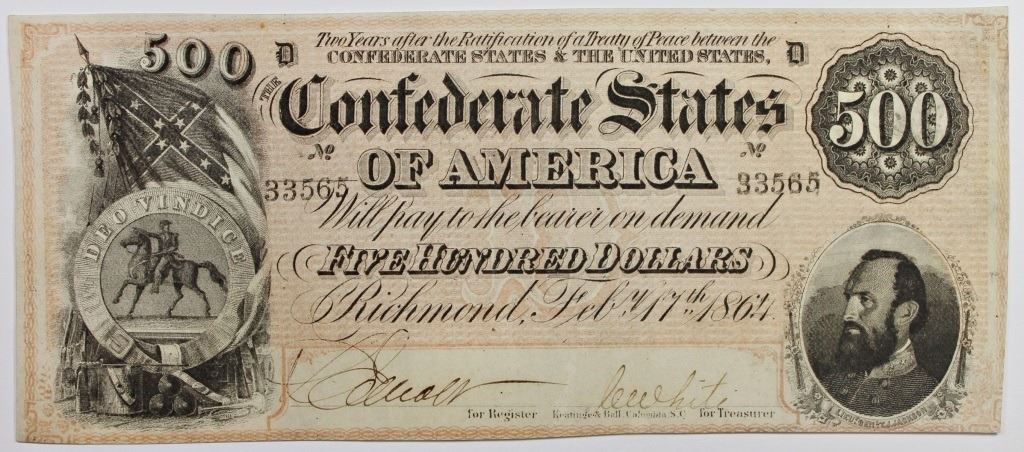 500 D Two Years after the Ratification of a Treaty of Peace between the D
CONFEDERATE STATES & THE UNITED STATES,
THE Confederate States
500
No OF AMERICA No
33565 33565
DEO VINDICE
Will pay to the bearer on demand
FIVE HUNDRED DOLLARS
Richmond, Feby. 17th 1864.
White
for Register Keatinge & Ball, Columbia, S.C. for Treasurer
LIEUT. GEN. T. J. JACKSON